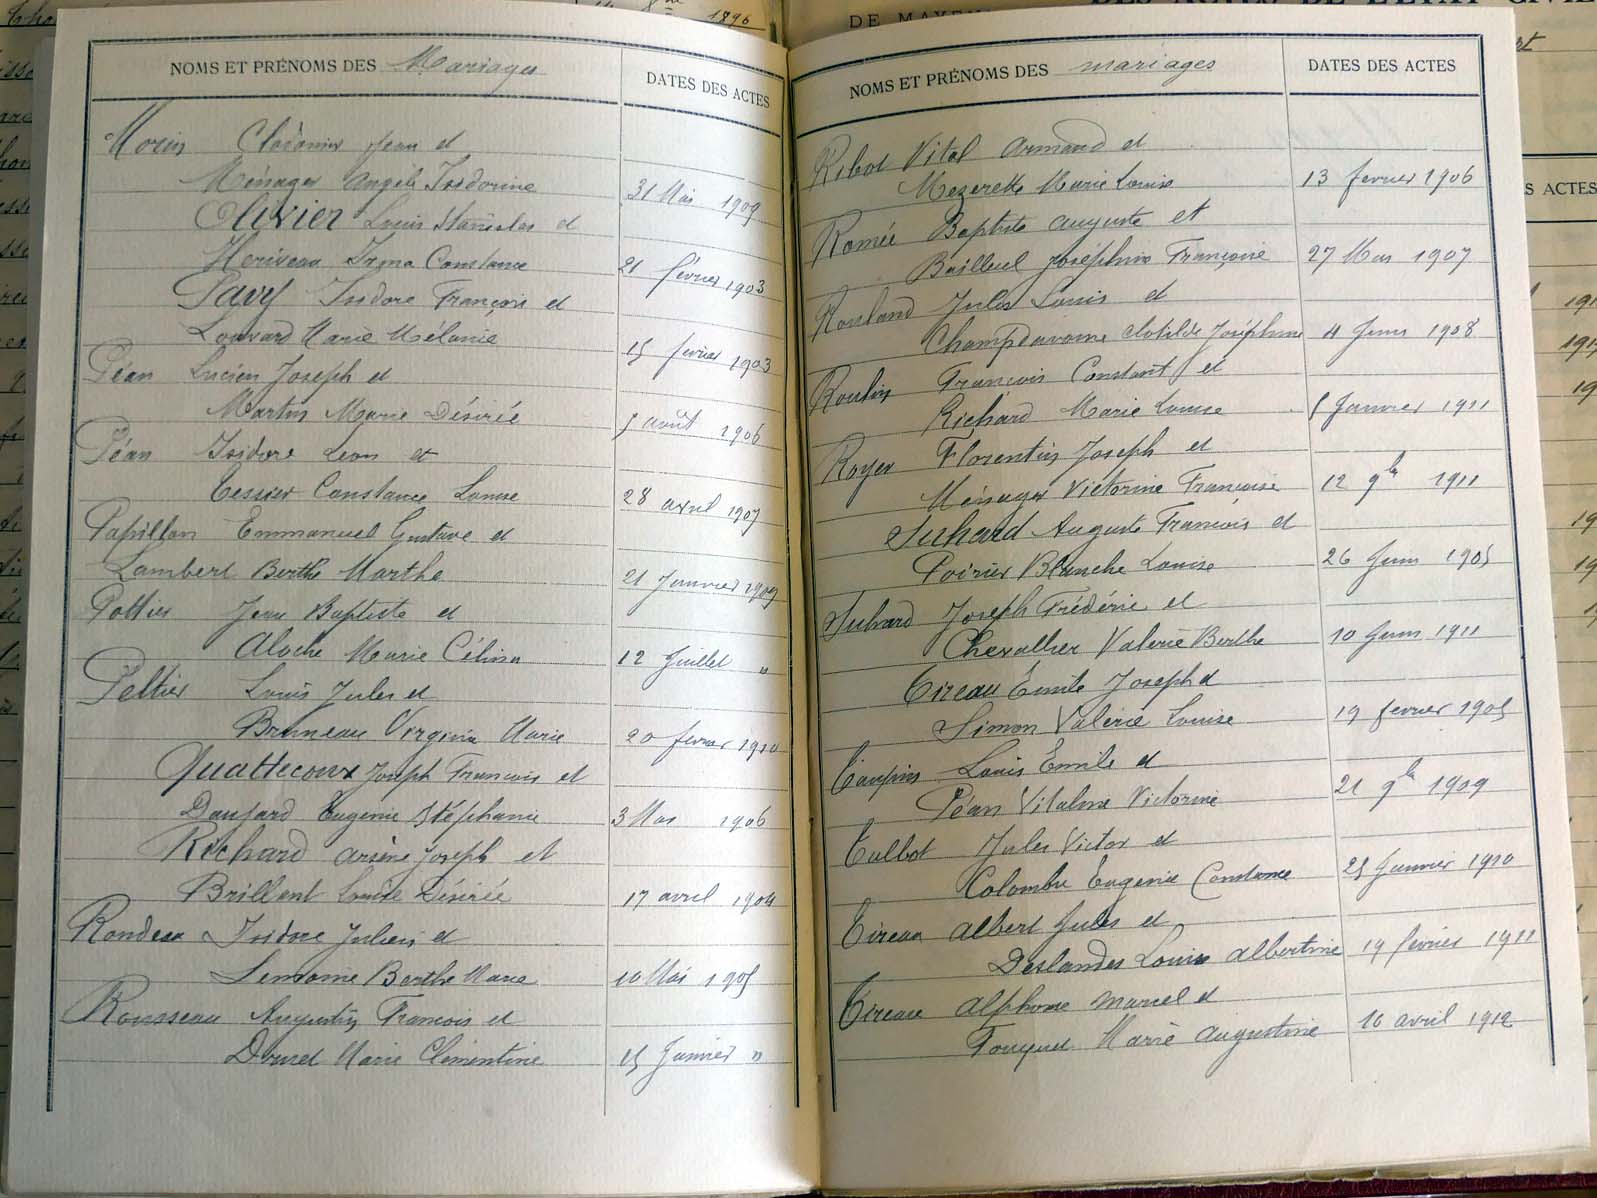 1896
NOMS ET PRÉNOMS DES Mariages
DATES DES ACTES
Morin Clodomir Jean et
Ménager Angèle Isidorine 31 Mai 1909
Olivier Louis Stanislas et
Heriveau Irma Constance 21 février 1903
Pavy Isidore François et
Louvard Marie Mélanie 15 février 1903
Péan Lucien Joseph et
Martin Marie Désirée 5 août 1906
Péan Isidore Leon et
Tessier Constance Louise 28 avril 1907
Papillon Emmanuel Gustave et
Lambert Berthe Marthe 21 Janvier 1909
Pottier Jean Baptiste et
Aloche Marie Célina 12 Juillet "
Peltier Louis Jules et
Bruneau Virginie Marie 20 fevrier 1910
Quattecoux Joseph François et
Eugenie Stéphanie 3 Mai 1906
Richard Arsène Joseph et
Brillant Louise Désirée 17 avril 1904
Rondeau Isidore Julien et
Lemoine Berthe Marie 10 Mai 1905
Rousseau Augustin François et
Druet Marie Clémentine 15 Janvier "
DE MAYEN
DES ACTES DE L'ÉTAT CIVIL
NOMS ET PRÉNOMS DES mariages
DATES DES ACTES
Ribot Vital Armand et
Mezerette Marie Louise 13 fevrier 1906
Romée Baptiste Auguste et
Bailleul Joséphine Françoise 27 Mars 1907
Rouland Jules Louis et
Champdavoine Clotilde Joséphine 4 Juin 1908
Roulin François Constant et
Richard Marie Louise 5 Janvier 1911
Royer Florentin Joseph et
Ménager Victorine Françoise 12 9bre 1911
Suhard Auguste François et
Poirier Blanche Louise 26 Juin 1905
Suhard Joseph Frédéric et
Chevallier Valérie Berthe 10 Juin 1911
Tireau Émile Joseph et
Simon Valérie Louise 19 fevrier 1905
Taupin Louis Émile et
Péan Vitaline Victorine 21 9bre 1909
Talbot Jules Victor et
Colombu Eugenie Constance 25 Janvier 1910
Tireau Albert Jules et
Deslandes Louise Albertine 19 février 1911
Tireau Alphonse Marcel et
Fouquet Marie Augustine 16 avril 1912
S ACTES